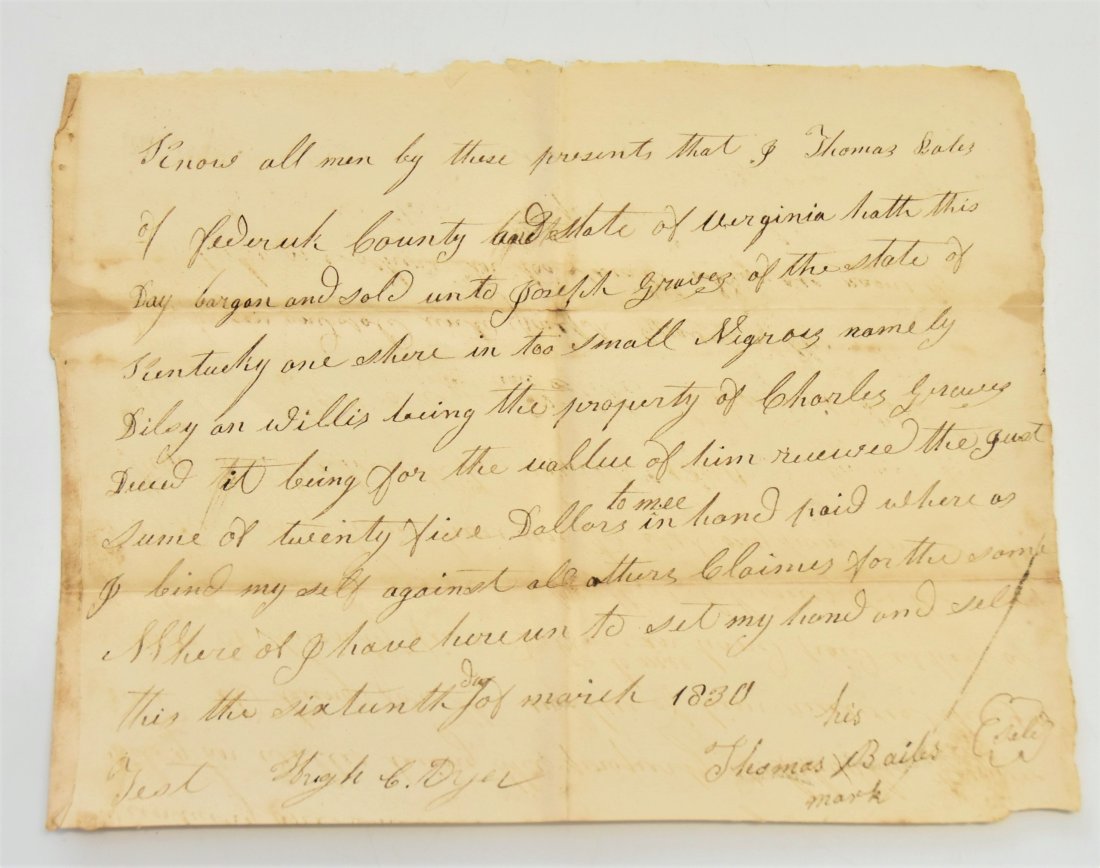 Know all men by these presents that I Thomas Bales
of frederick County and State of Verginia hath this
Day bargan and sold unto Joseph Graves of the state of
Kentucky one shere in too small Negroes namely
Dilsy an Willis being the property of Charles Graves
Dece'd it being for the vallue of him receivee the just
sume of twenty five Dollars to mee in hand paid where as
I bind my self against all others Claimes for the same
Where of I have here un to set my hand and sell
this the sixteenth day of march 1830
his
Test Hugh C. Dyer Thomas X Bailes Sele
mark